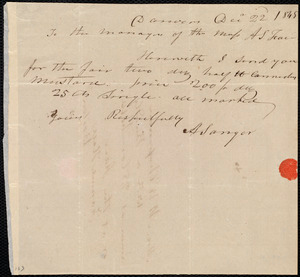 Danvers Dec 22 1841
To the managers of the Mass A S Fair
Herewith I send you
for the Fair two doz half lb Cannisters
Mustard price 200 p doz
25 cts Single all marked
Yours Respectfully
A Sanger